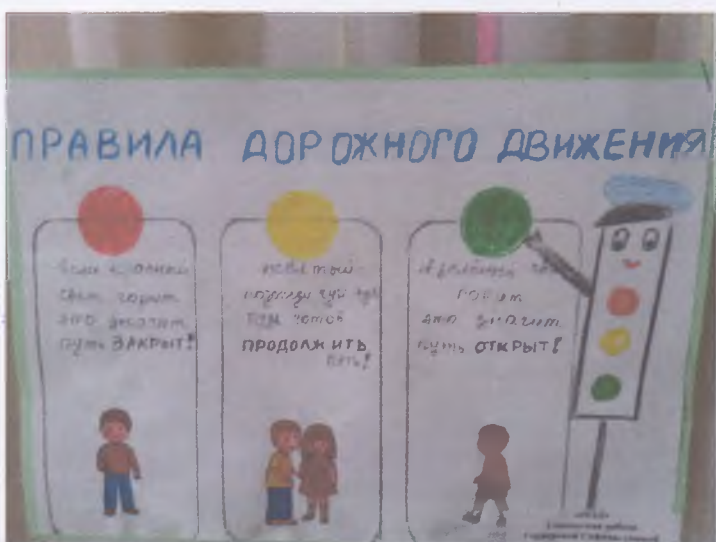 ПРАВИЛА ДОРОЖНОГО ДВИЖЕНИЯ
Если красный
свет горит
это значит
путь ЗАКРЫТ!
желтый
будь готов
ПРОДОЛЖИТЬ
путь!
А зелёный
горит
это значит
путь ОТКРЫТ!